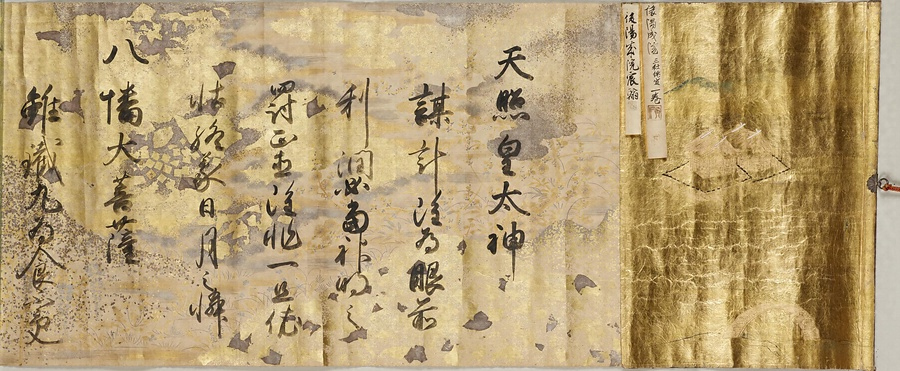 後陽成院 三社託宣 一巻
後陽成院宸翰
天照皇太神
謀計雖為眼前
利潤必當神明之
罸正直雖非一旦依
怙終蒙日月之憐
八幡大菩薩
雖鐵丸為食不受